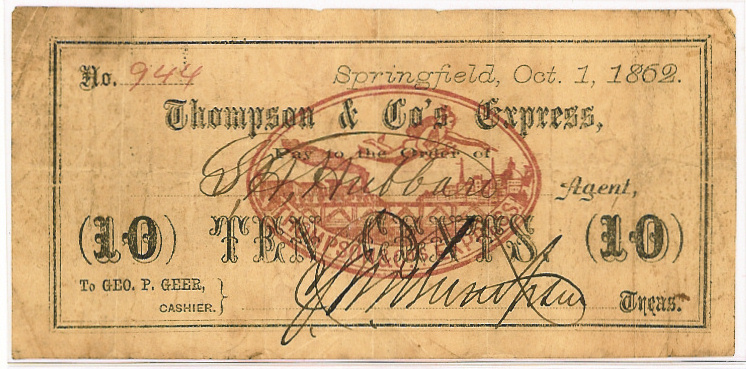 No. 944
Springfield, Oct. 1, 1862.
Thompson & Co's Express,
Pay to the Order of
Hubbard Agent,
(10) TEN CENTS. (10)
To GEO. P. GEER,
CASHIER.
Treas.